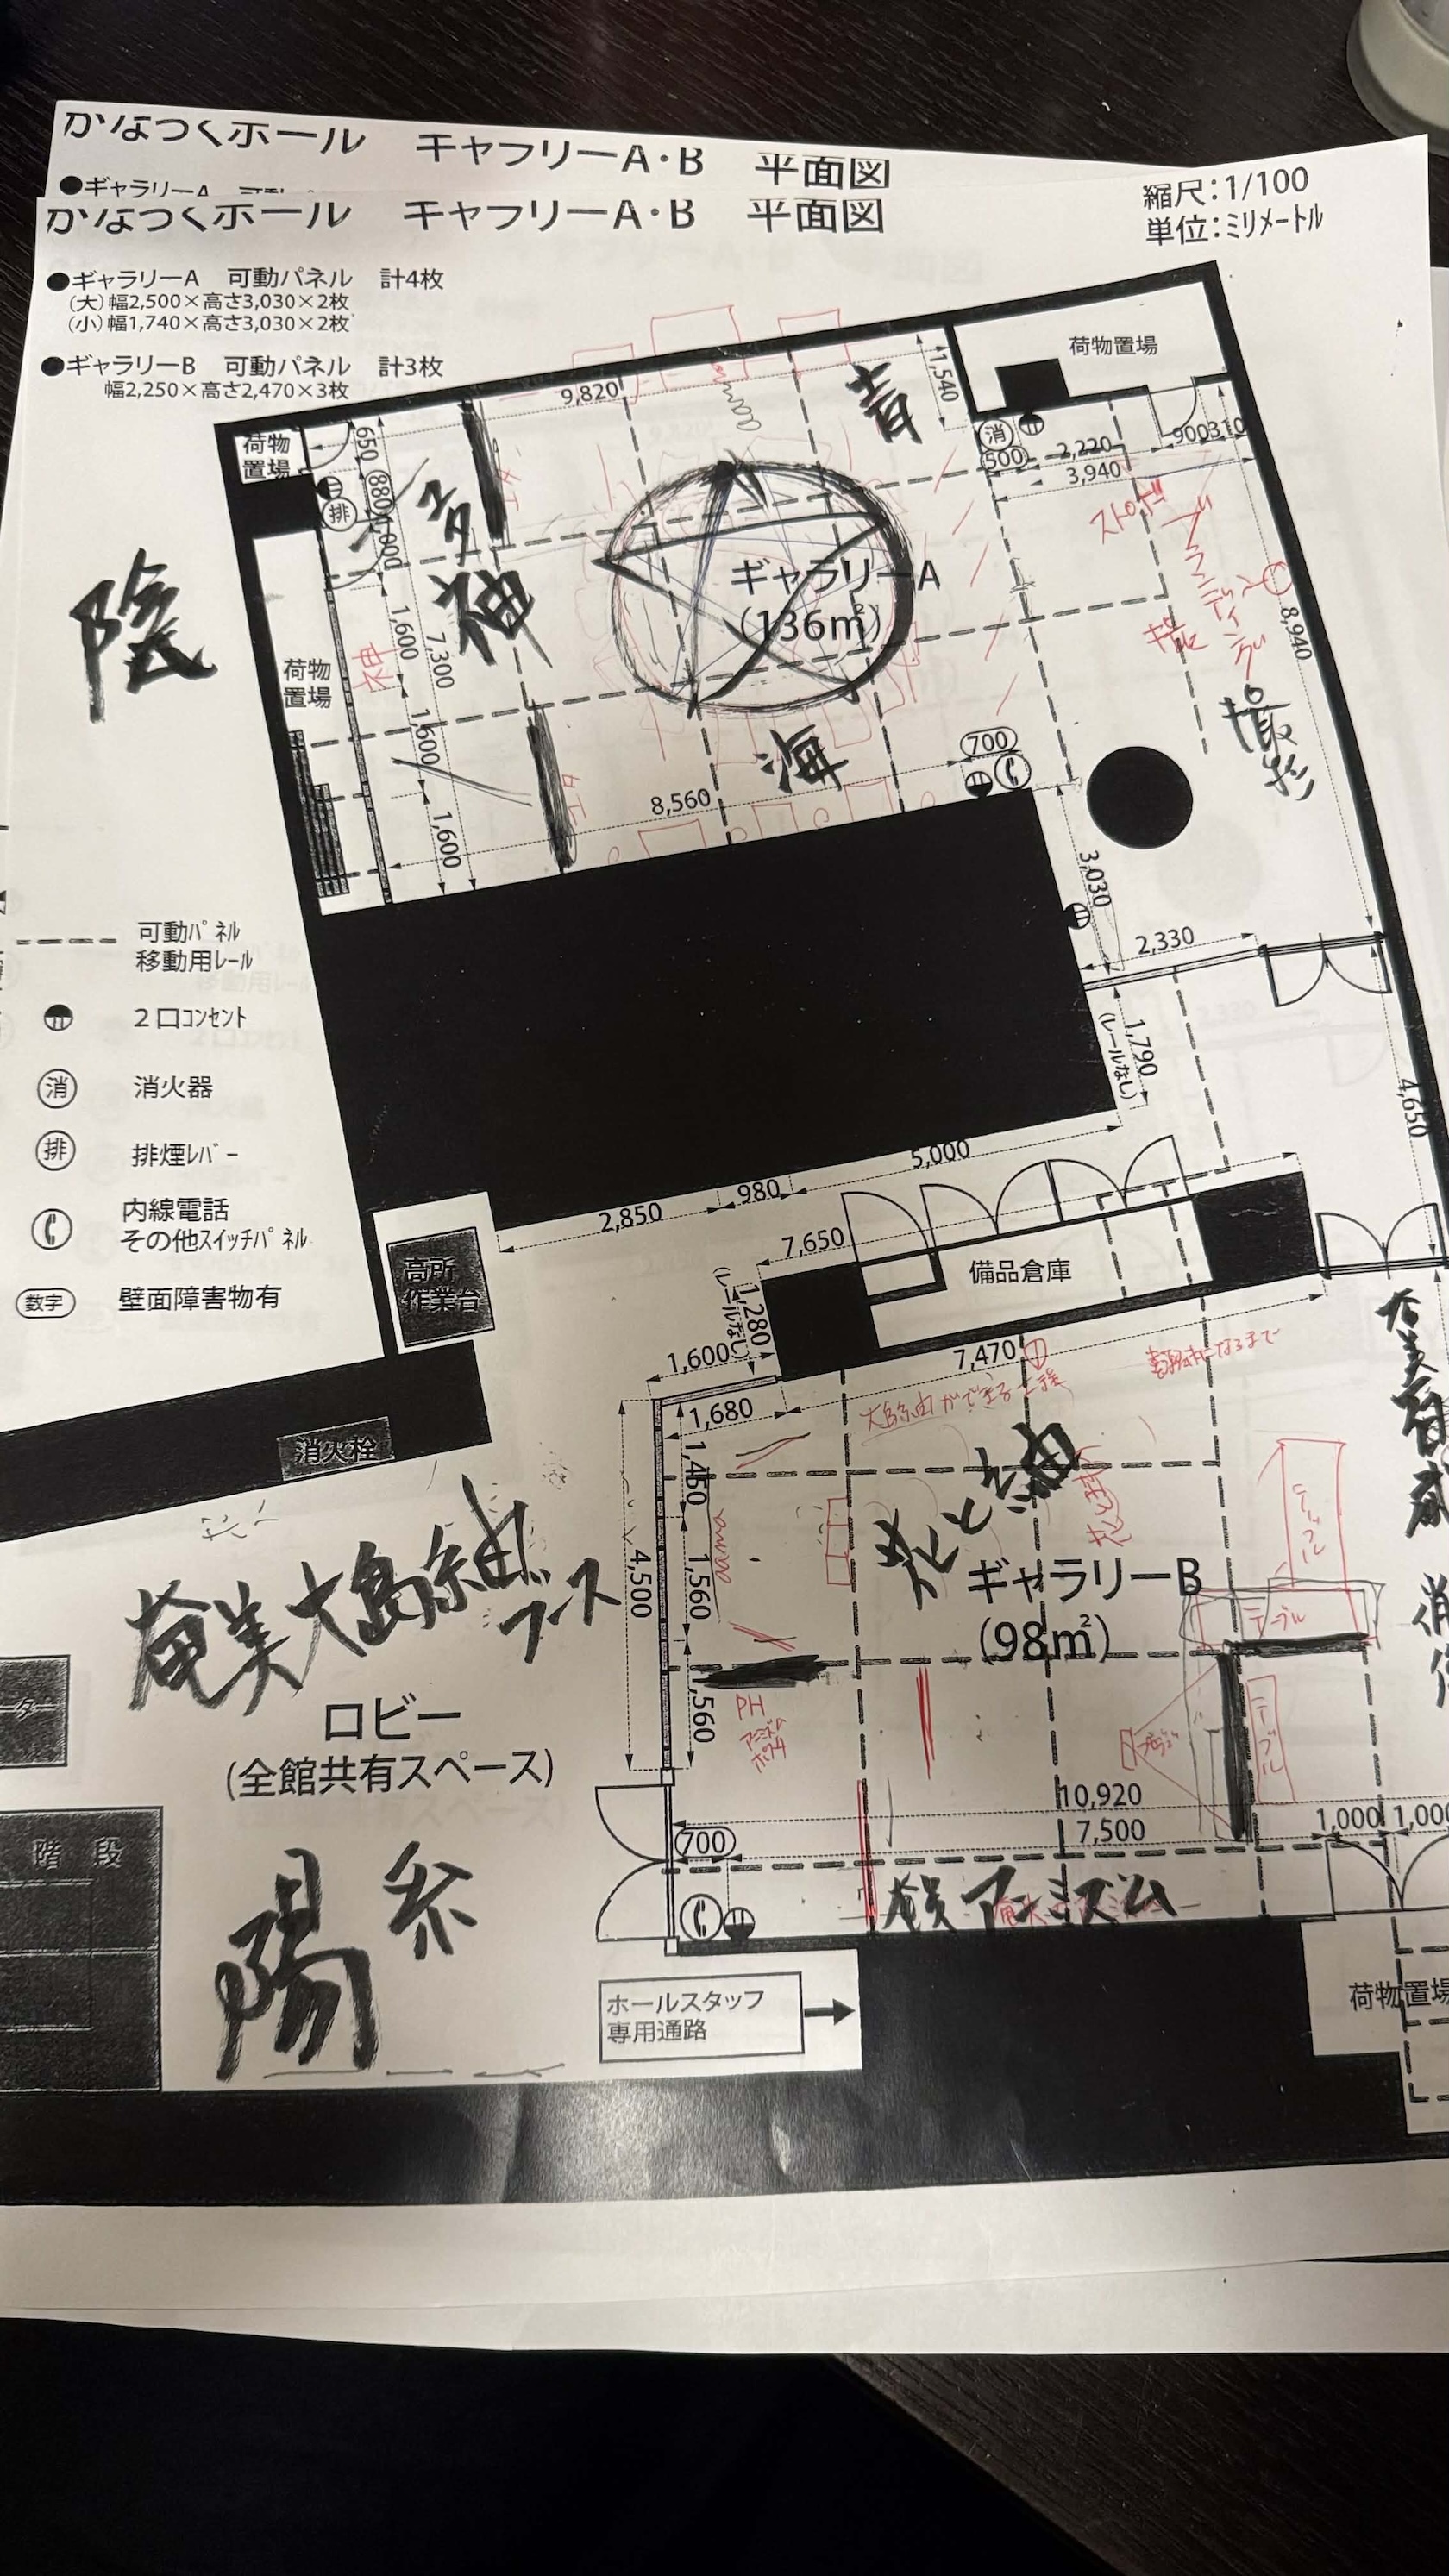 かなっくホール ギャラリーA・B 平面図
●ギャラリーA
かなっくホール ギャラリーA・B 平面図
縮尺：1/100
単位：ミリメートル
●ギャラリーA 可動パネル 計4枚
（大）幅2,500×高さ3,030×2枚
（小）幅1,740×高さ3,030×2枚
●ギャラリーB 可動パネル 計3枚
幅2,250×高さ2,470×3枚
荷物置場
1,540
9,820
青
荷物
置場
650
880
1,000
排
消
500
2,220
900
310
3,940
陰
神
ギャラリーA
（136㎡）
撮影
8,940
荷物
置場
神
1,600
7,300
1,600
1,600
海
700
8,560
3,030
2,330
可動パネル
移動用レール
2口コンセント
消 消火器
排 排煙レバー
内線電話
その他スイッチパネル
数字 壁面障害物有
1,790
（レールなし）
4,650
5,000
980
2,850
7,650
高所
作業台
備品倉庫
1,280
（レールなし）
1,600
7,470
1,680
消火栓
大島紬ができる工程
1,450
4,500
1,560
1,560
奄美大島紬
ブース
ロビー
(全館共有スペース)
ギャラリーB
（98㎡）
テーブル
テーブル
テーブル
PH
10,920
7,500
1,000
700
奄美アニミズム
階段
陽
ホールスタッフ
専用通路
荷物置場